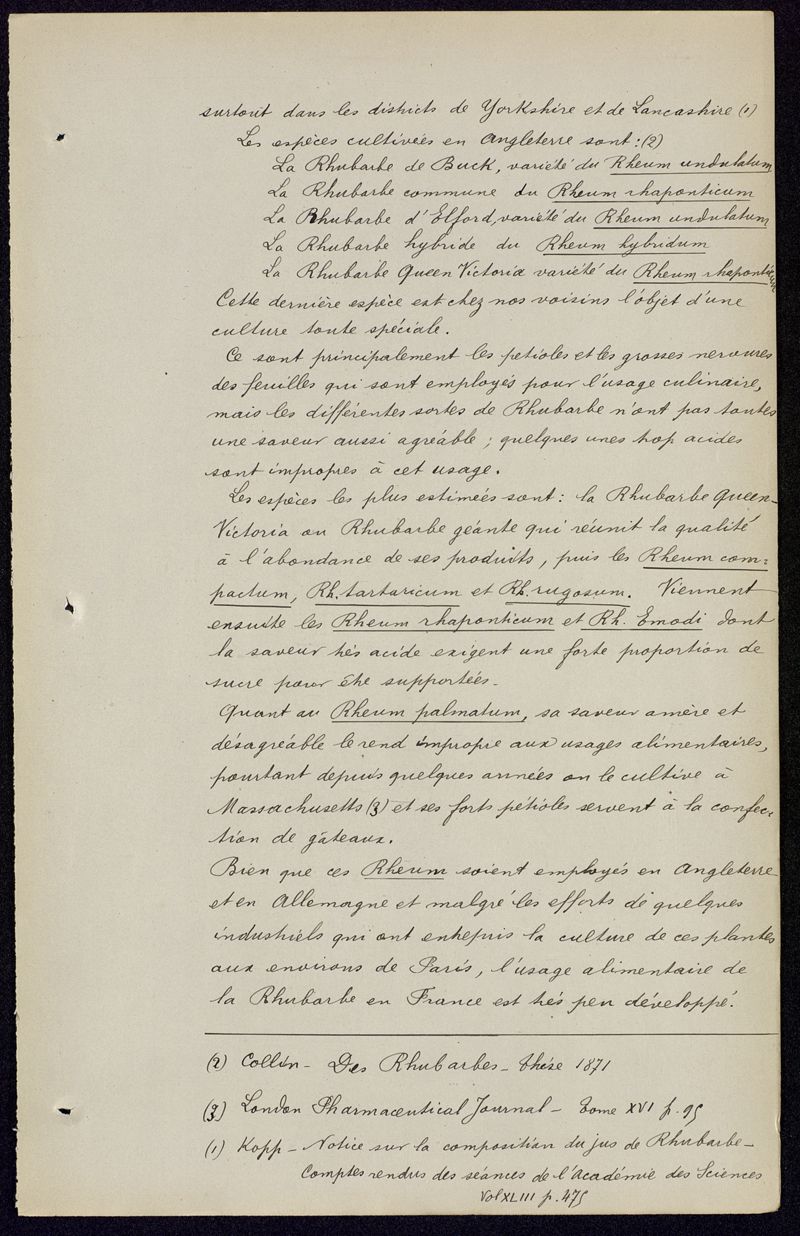 surtout dans les districts de Yorkshire et de Lancashire (1)
Les espèces cultiveés en Angleterre sont : (2)
La Rhubarbe de Buck, varieté du Rheum undulatum
La Rhubarbe commune du Rheum rhaponticum
La Rhubarbe d'Elford, varieté du Rheum undulatum
La Rhubarbe hybride du Rheum hybridum
La Rhubarbe Queen Victoria variété du Rheum rhaponticum
Cette dernière espèce est chez nos voisins l'objet d'une
culture toute spéciale.
Ce sont principalement les petioles et les grosses nervures
des feuilles qui sont employés pour l'usage culinaire,
mais les différentes sortes de Rhubarbe n'ont pas toutes
une saveur aussi agréable ; quelques unes trop acides
sont impropres à cet usage.
Les espèces les plus estimeés sont : la Rhubarbe Queen-
Victoria ou Rhubarbe géante qui réunit la qualité
à l'abondance de ses produits, puis les Rheum com=
pactum, Rh. tartaricum et Rh. rugosum. Viennent
ensuite les Rheum rhaponticum et Rh. Emodi dont
la saveur très acide exigent une forte proportion de
sucre pour être supporteés -
Quant au Rheum palmatum, sa saveur amère et
désagréable le rend impropre aux usages alimentaires,
pourtant depuis quelques années on le cultive à
Massachusetts (3) et ses forts pétioles servent à la confec-
tion de gâteaux.
Bien que ces Rheum soient employés en Angleterre
et en Allemagne et malgré les efforts de quelques
industriels qui ont entrepris la culture de ces plantes
aux environs de Paris, l'usage alimentaire de
la Rhubarbe en France est très peu développé.
(2) Collin - Des Rhubarbes - thèse 1871
(3) London Pharmaceutical Journal - Tome XVI p. 95
(1) Kopp - Notice sur la composition du jus de Rhubarbe -
Comptes rendus des séances de l'Académie des Sciences
Vol XLIII p. 475